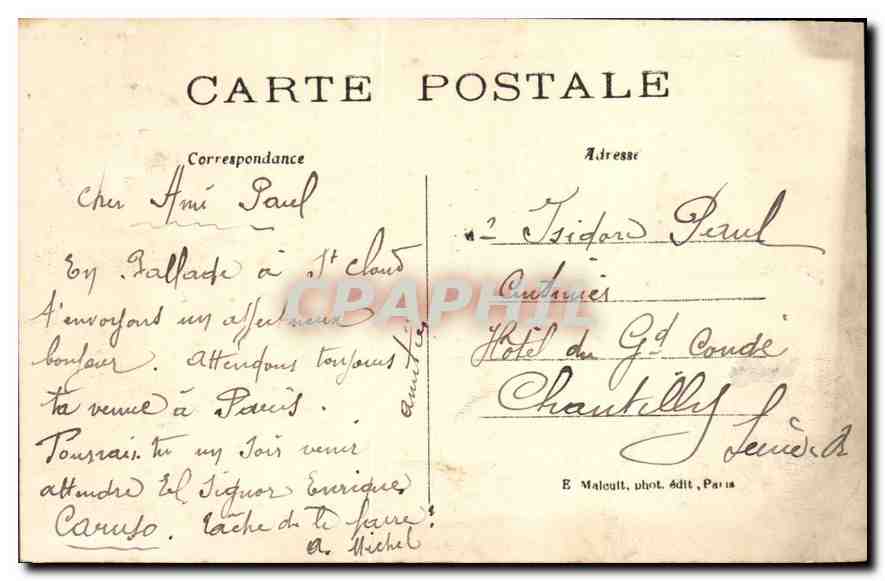 CARTE POSTALE
Correspondance
Adresse
Cher Ami Paul
En Ballade à St Cloud
t'envoyons un affectueux
bonjour. Attendons toujours
ta venue à Paris.
Pourrais-tu un soir venir
attendre El Signor Enrique
Caruso. tâche de le faire.
A. Michel
amitiés
Isidore Paul
Hôtel du Gd Condé
Chantilly
E Malcuit, phot. édit, Paris
CPAPHIL